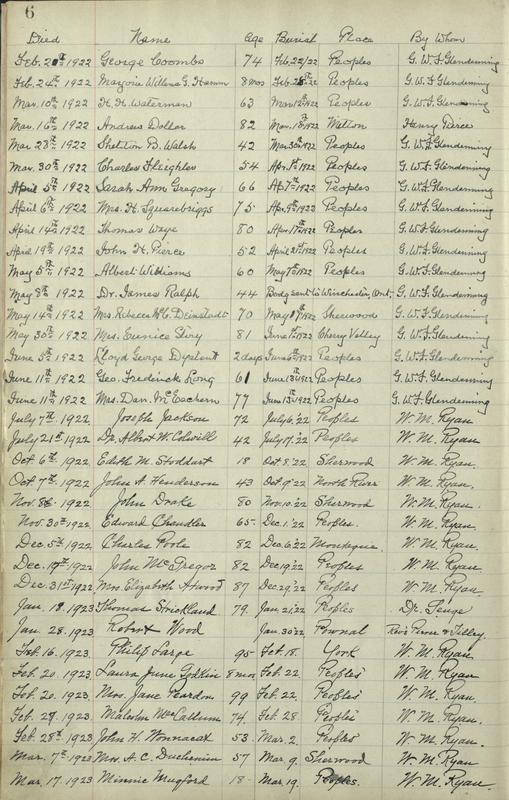 6
Died Name Age Burial Place By Whom
Feb. 20th 1922 George Coombs 74 Feb. 22/22 Peoples G. W. F. Glendenning
Feb. 24th 1922 Marjorie Willena G. Hamm 8 mos Feb. 22 Peoples G. W. F. Glendenning
Mar. 10th 1922 H. H. Waterman 63 Mar. 12th 1922 Peoples G. W. F. Glendenning
Mar. 16th 1922 Andrew Dollar 82 Mar. 18th 1922 Wilton Henry Pierce
Mar 28th 1922 B. Walsh 42 Mar. 30th 1922 Peoples G. W. F. Glendenning
Mar. 30th 1922 Charles Fleighler 54 Apr. 1st 1922 Peoples G. W. F. Glendenning
April 5th 1922 Sarah Ann Gregory 66 Apr. 7th 1922 Peoples G. W. F. Glendenning
April 6th 1922 Mrs. H. Squarebriggs 75 Apr. 9th 1922 Peoples G. W. F. Glendenning
April 14th 1922 Thomas Waye 80 Apr. 17th 1922 Peoples G. W. F. Glendenning
April 19th 1922 John H. Pierce 52 April 21st 1922 Peoples G. W. F. Glendenning
May 5th 1922 Albert Williams 60 May 7th 1922 Peoples G. W. F. Glendenning
May 8th 1922 Dr. James Ralph 44 Body sent to Winchester, Ont. G. W. F. Glendenning
May 14th 1922 Mrs Rebecca Mc Deinstadt 70 May 1922 Sherwood G. W. F. Glendenning
May 30th 1922 Mrs. Eunice 81 June 1st 1922 Cherry Valley G. W. F. Glendenning
June 5th 1922 Lloyd George Dysdent 2 days June 6th 1922 Peoples G. W. F. Glendenning
June 11th 1922 Geo. Frederick Long 61 June 13th 1922 Peoples G. W. F. Glendenning
June 11th 1922 Mrs. Dan. McEachern 77 June 13th 1922 Peoples G. W. F. Glendenning
July 7th 1922 Joseph Jackson 72 July 6. '22 Peoples W. M. Ryan
July 21st 1922 Dr. Albert W. Colwill 42 July 17. '22 Peoples W. M. Ryan.
Oct 6th 1922 Edith M. Stoddart 18 Oct 8. '22 Sherwood W. M. Ryan.
Oct 7th 1922 John A. Henderson 43 Oct 9. '22 North River W. M. Ryan.
Nov. 8th 1922 John Drake 80 Nov. 10. '22 Sherwood W. M. Ryan.
Nov. 30th 1922 Edward Chandler 65. Dec. 1. '22 Peoples. W. M. Ryan
Dec. 5th 1922 Charles Poole 82 Dec. 6. '22 Montague. W. M. Ryan.
Dec. 17th 1922 John McGregor 82 Dec 19. '22 Peoples W. M. Ryan
Dec. 31st 1922 Mrs. Elizabeth Atwood 87 Dec. 29. '22 Peoples W. M. Ryan.
Jan. 18. 1923 Thomas Strickland 79. Jan. 21. '22 Peoples Dr.
Jan. 28. 1923 Robert Wood Jan. 30. '22 Pownal Revs & Tilley.
Feb. 16. 1923. Philip Large 95 Feb. 18. York W. M. Ryan
Feb. 20. 1923 Laura June Godkin 8 mos Feb. 22. Peoples W. M. Ryan.
Feb. 20. 1923 Mrs. Jane Reardon 99 Feb. 22. Peoples W. M. Ryan
Feb. 27. 1923 Malcolm MacCallum 74. Feb. 28. Peoples W. M. Ryan.
Feb. 28th 1923 John H. Wonnacott 53. Mar. 2. Peoples W. M. Ryan.
Mar. 7th 1923 Mrs. A. C. Duchemin 57 Mar 9. Sherwood W. M. Ryan.
Mar. 17. 1923 Minnie Mugford 18 Mar. 19. Peoples. W. M. Ryan.